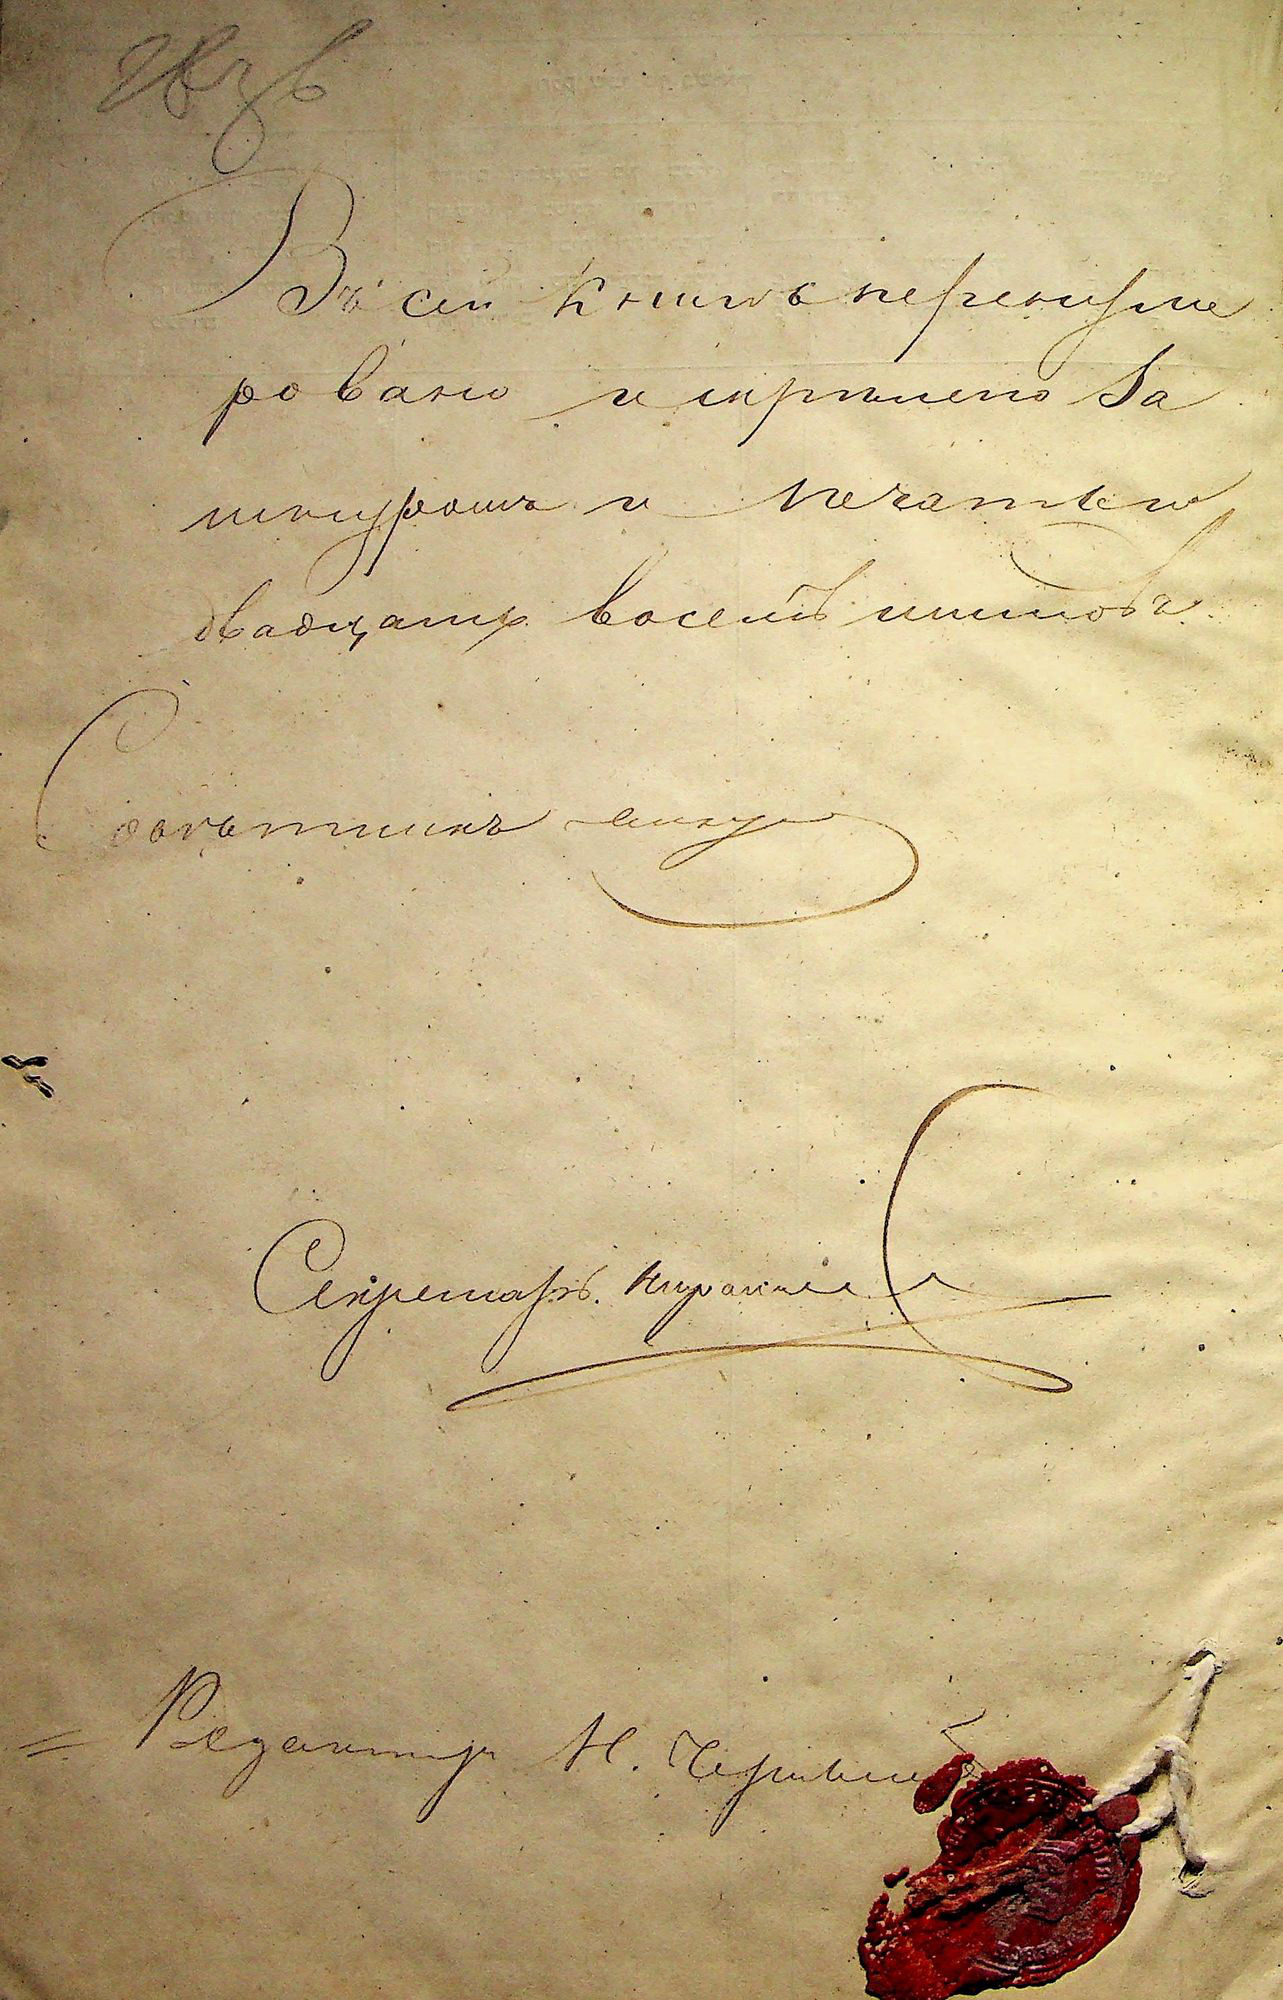 Въ сей книгѣ перенуме
ровано и скрѣплено за
шнуромъ и печатью
двадцать восемь листовъ
Совѣтникъ
Секретарь
Редакторъ Н.